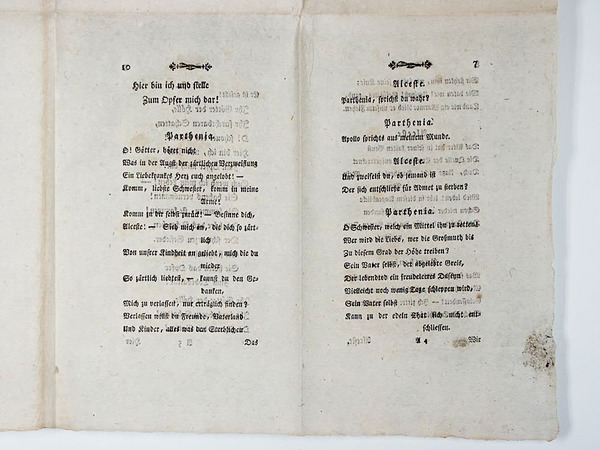 10
Hier bin ich und stelle
Zum Opfer mich dar!
Parthenia.
O! Götter, höret nicht
Was in der Angst der zärtlichen Verzweiflung
Ein Liebekrankes Herz euch angelobt! —
Komm, liebste Schwester, komm in meine
Arme!
Komm zu dir selbst zurük! — Besinne dich,
Alceste! — Sieh mich an, die dich so zärt-
lich
Von unsrer Kindheit an geliebt, mich die du
wieder
So zärtlich liebtest, — kannst du den Ge-
danken,
Mich zu verlassen, nur erträglich finden?
Verlassen willst du Freunde, Vaterland
Und Kinder, alles was den Sterblichen
Das
7
Alceste.
Parthenia, sprichst du wahr?
Parthenia.
Apollo sprichts aus meinem Munde.
Alceste.
Und zweifelst du, ob jemand ist
Der sich entschließe für Admet zu sterben?
Parthenia.
O Schwester, welch ein Mittel ihn zu retten!
Wer wird die Liebe, wer die Großmuth bis
Zu diesem Grad der Höhe treiben?
Sein Vater selbst, der abgelebte Greis,
Der lebendtod ein freudeleeres Daseyn
Vielleicht noch wenig Tage schleppen wird,
Sein Vater selbst
Kann zu der edeln That sich nicht ent-
schliessen.
A 4 Wir